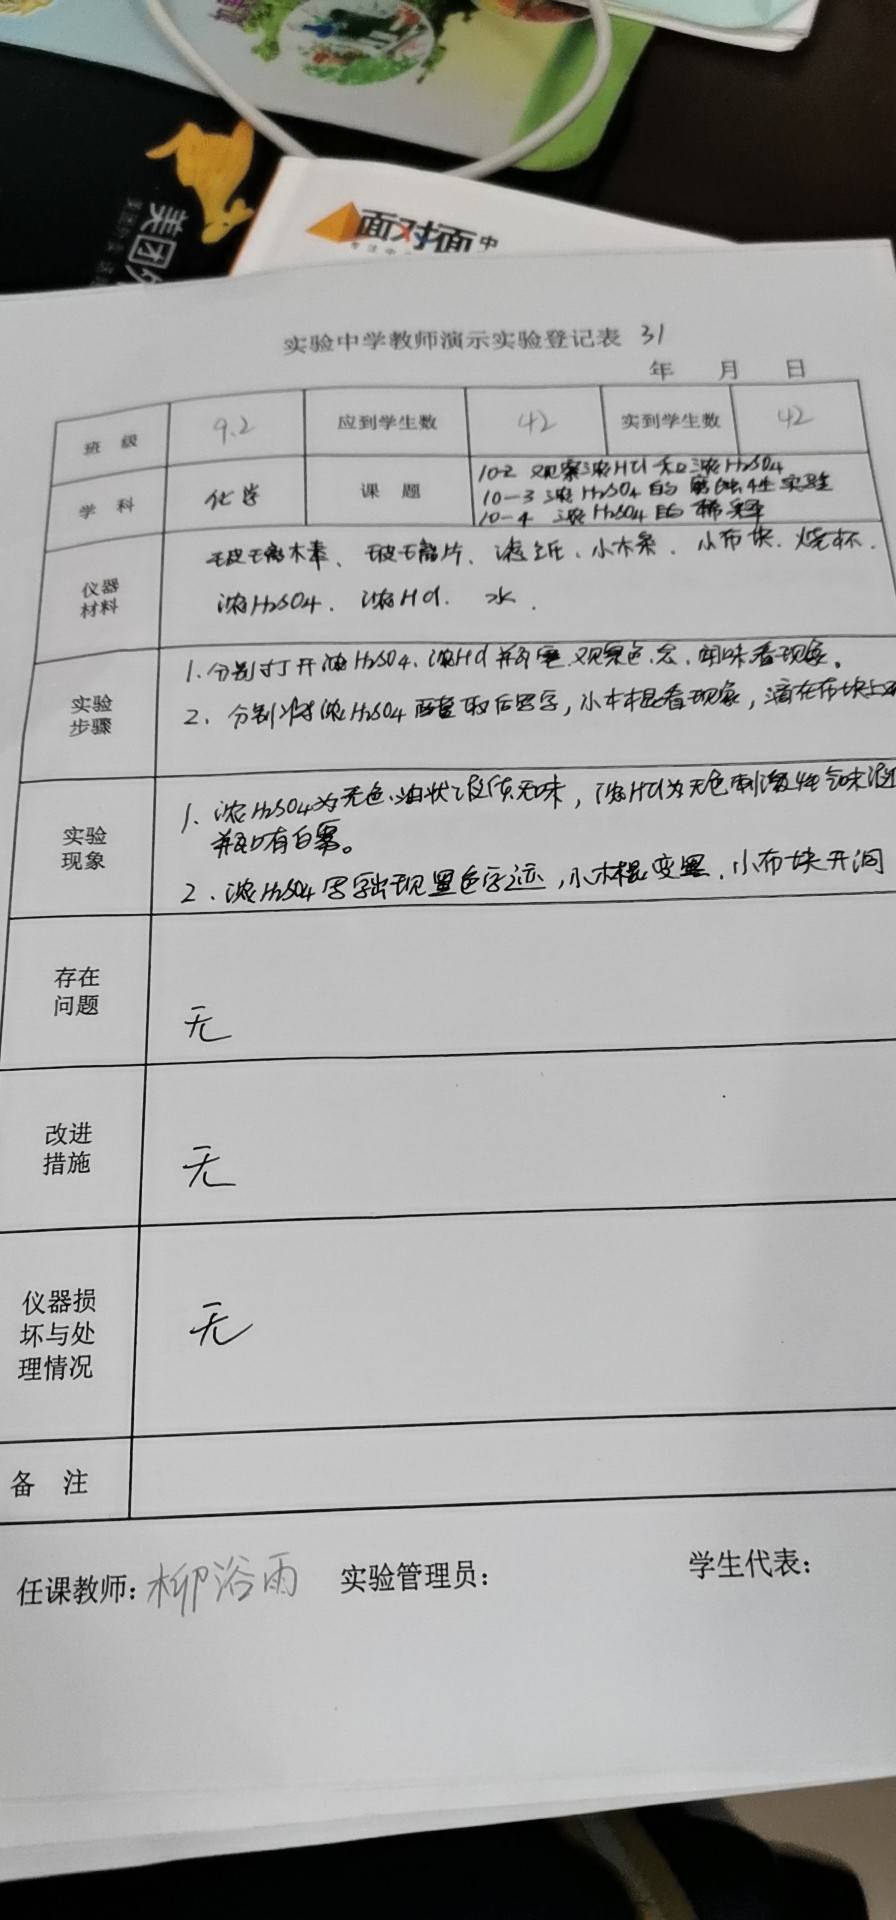 美团外
面对面 中
实验中学教师演示实验登记表 31
年 月 日
班 级 9.2 应到学生数 42 实到学生数 42
学 科 化学 课 题 10-2 观察浓HCl和浓H₂SO₄
10-3 浓H₂SO₄的腐蚀性实验
10-4 浓H₂SO₄的稀释
仪器
材料
玻璃木奉、玻璃片、滤纸、小木条、小布块、烧杯、
浓H₂SO₄、浓HCl、水.
实验
步骤
1.分别打开浓H₂SO₄、浓HCl瓶塞观察色、态、闻味看现象。
2、分别将浓H₂SO₄蘸取后写字,小木棍看现象,滴在布块上
实验
现象
1、浓H₂SO₄为无色、油状液体无味,浓HCl为无色刺激性气味液
瓶口有白雾。
2、浓H₂SO₄写字出现黑色字迹,小木棍变黑、小布块开洞
存在
问题
无
改进
措施
无
仪器损
坏与处
理情况
无
备 注
任课教师:柳浴雨 实验管理员: 学生代表: